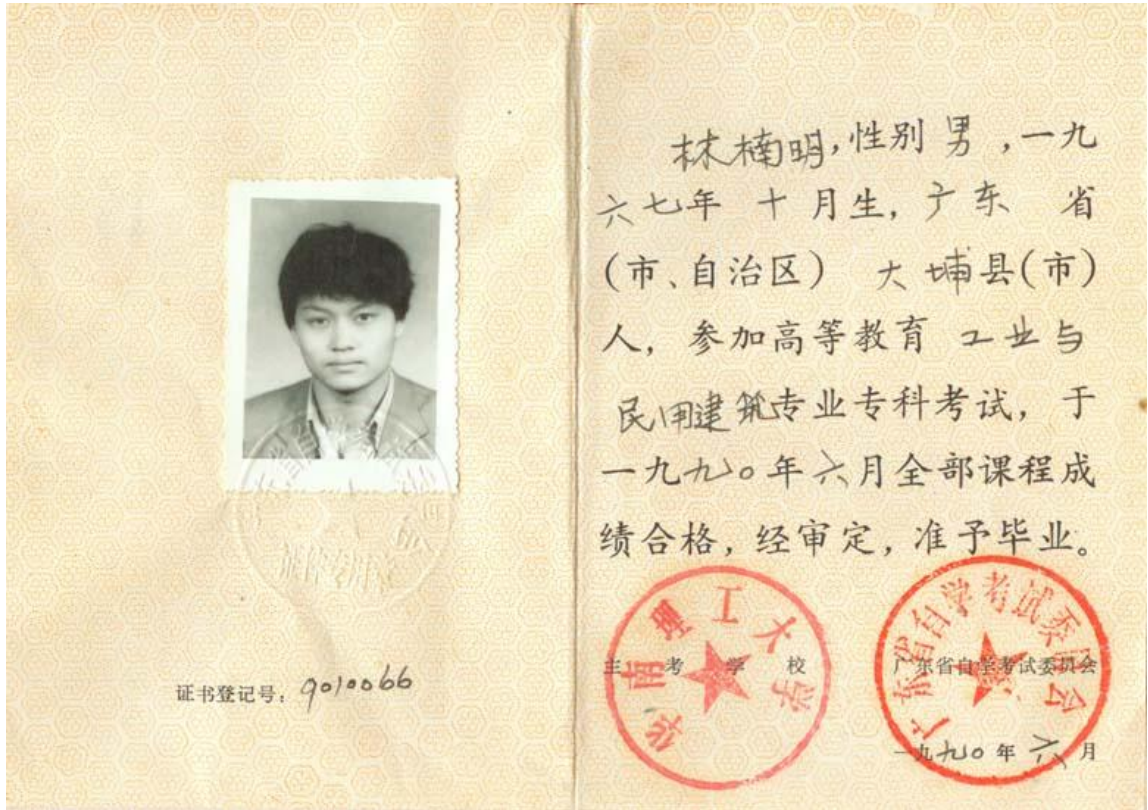 证书登记号：9010066
林楠明，性别 男，一九
六七年 十 月生，广东 省
（市、自治区） 大埔县（市）
人，参加高等教育 工业与
民用建筑专业专科考试，于
一九九〇年六月全部课程成
绩合格，经审定，准予毕业。
华南理工大学
主考学校
广东省自学考试委员会
广东省自学考试委员会
一九九〇年六月